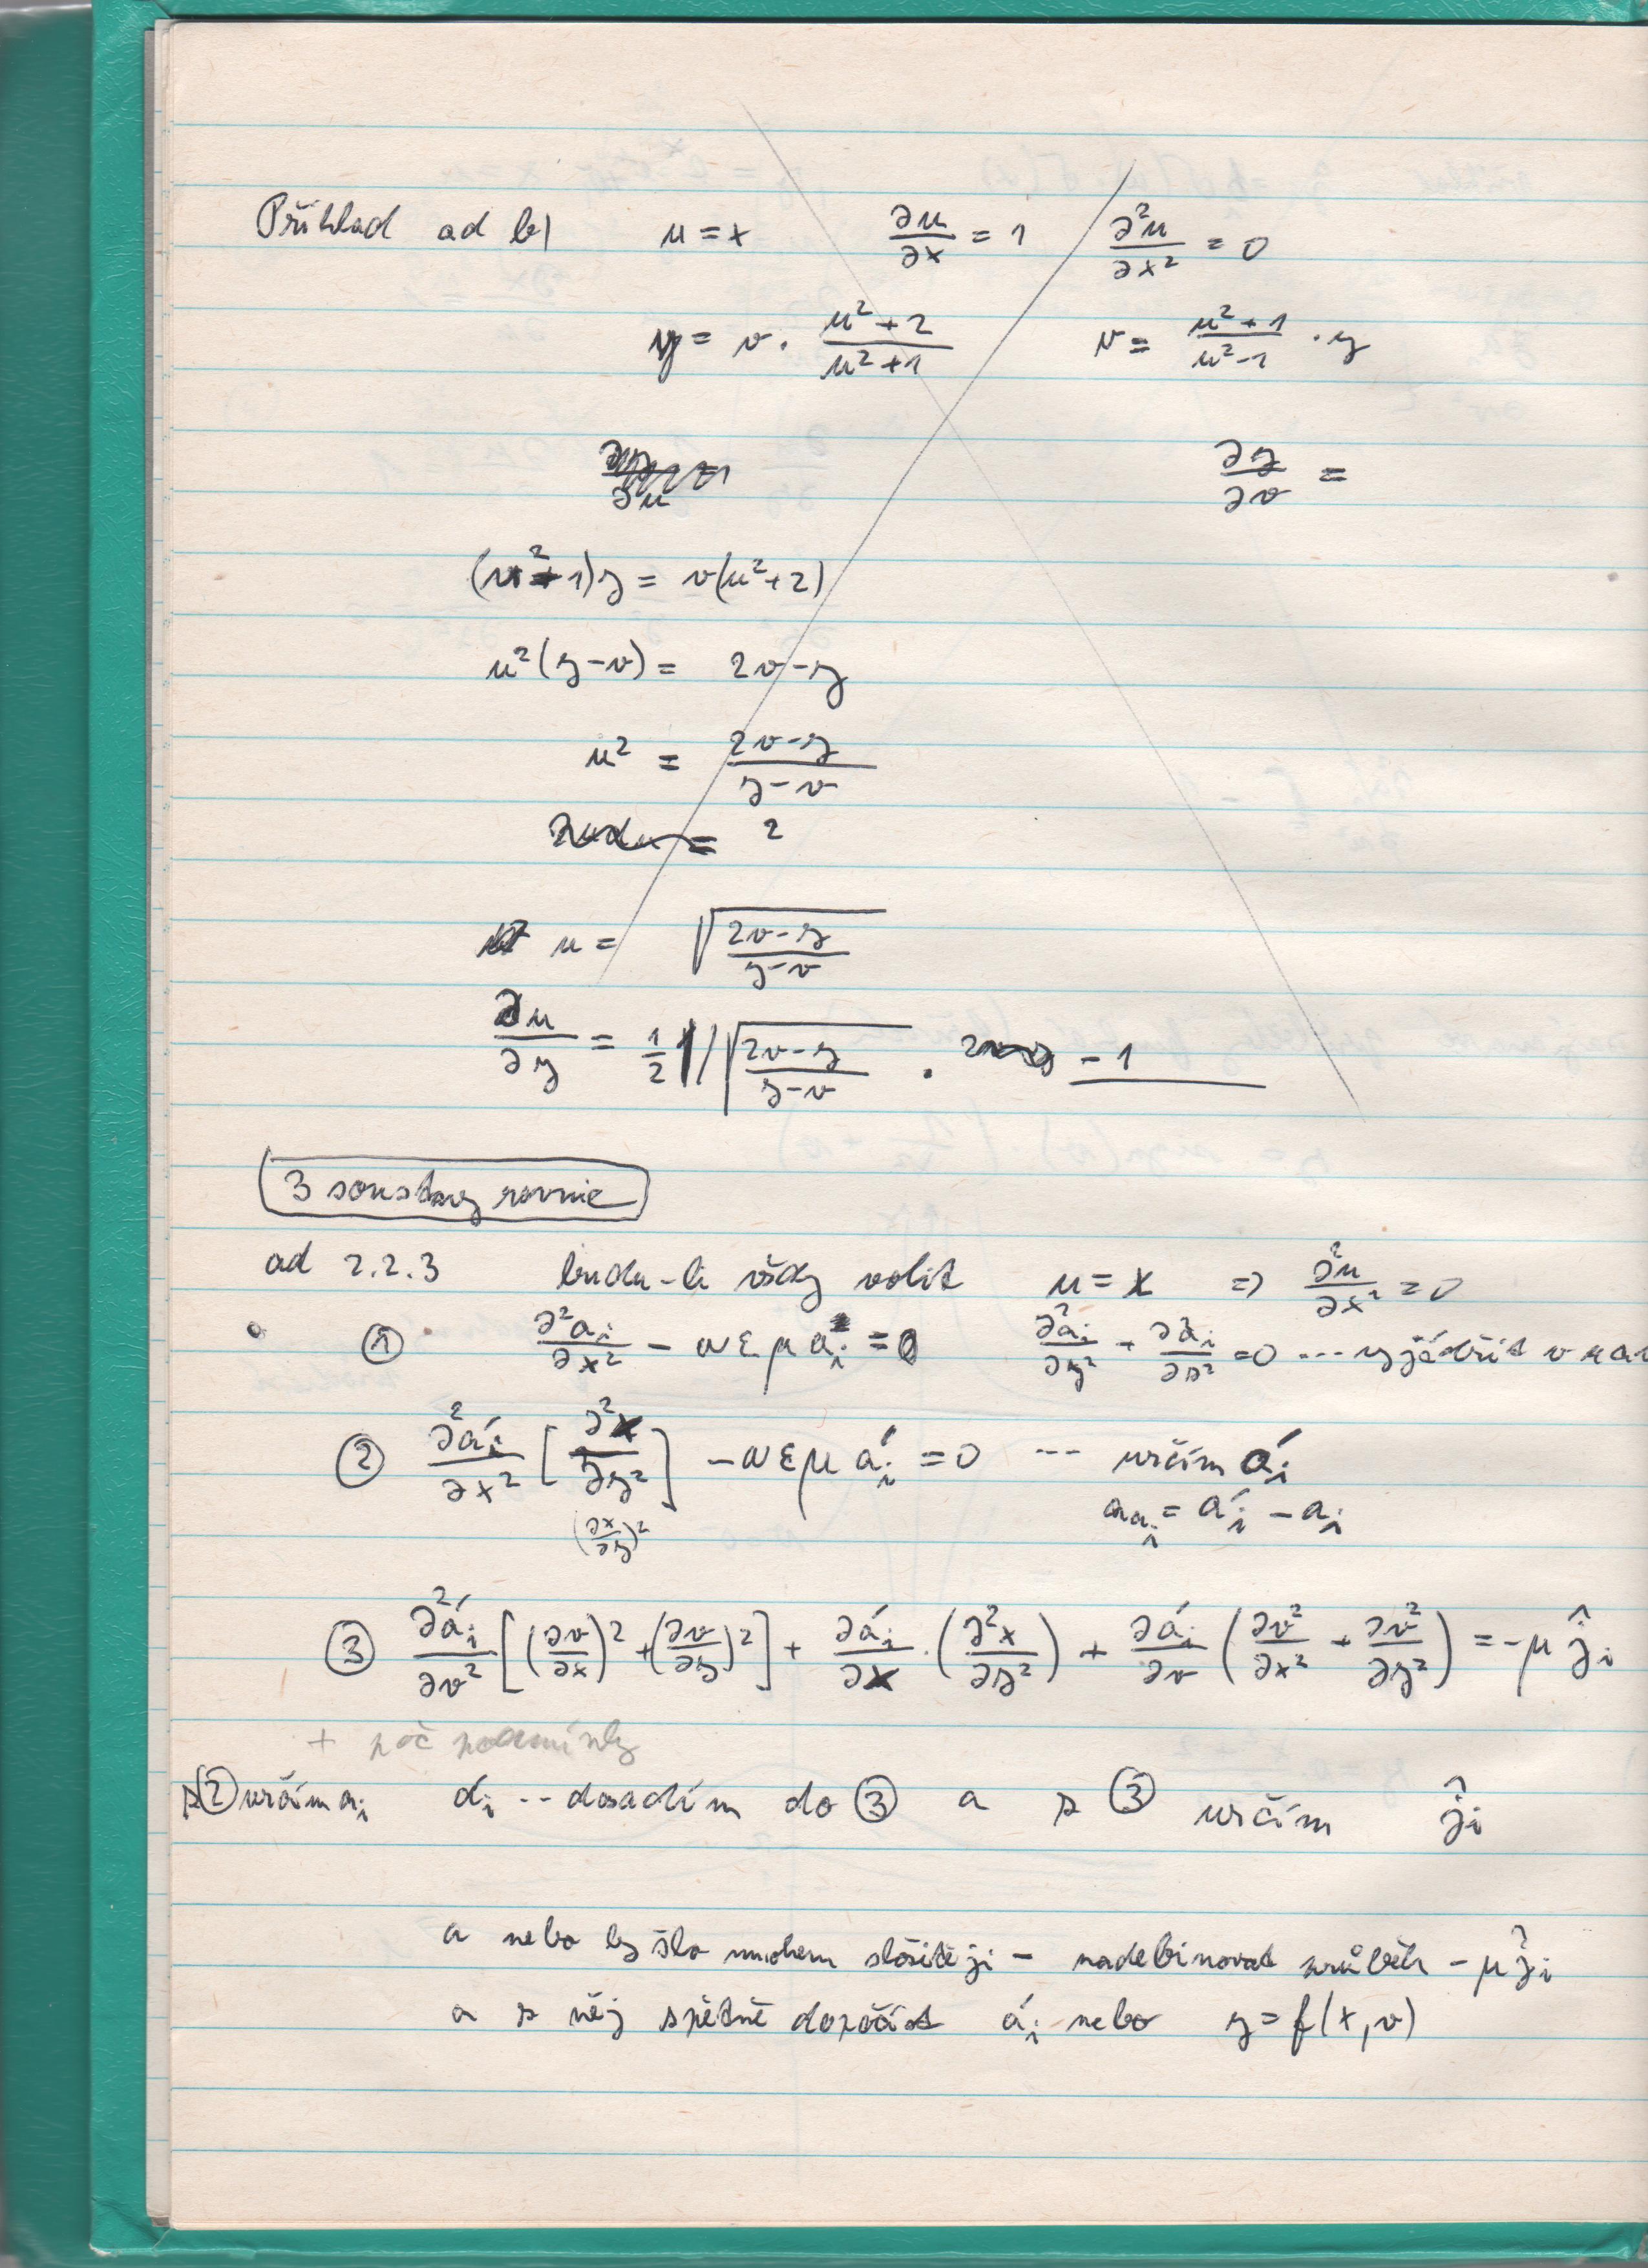 Příklad ad b) u = x ∂u/∂x = 1 ∂²u/∂x² = 0
y = v · (u²+2)/(u²+1) v = (u²+1)/(u²-1) · y
∂y/∂v =
(u²+1)y = v(u²+2)
u²(y-v) = 2v-y
u² = (2v-y)/(y-v)
= 2
u = √((2v-y)/(y-v))
∂u/∂y = 1/2 1/√((2v-y)/(y-v)) · -1
3 soustavy rovnic
ad 2.2.3 budu-li vždy volit u = x => ∂²u/∂x² = 0
① ∂²a_i/∂x² - ωεμ a_i = 0 ∂²a_i/∂y² + ∂²a_i/∂z² = 0 ... vyjádřit v
② ∂²á_i/∂x² [∂²x/∂y²] - ωεμ á_i = 0 --- určím á_i
(∂x/∂y)² = á_i - a_i
③ ∂²á_i/∂v² [(∂v/∂x)² + (∂v/∂y)²] + ∂á_i/∂x · (∂²x/∂y²) + ∂á_i/∂v (∂v²/∂x² + ∂v²/∂y²) = -μ ĵ_i
+ poč podmínky
z ② určím a_i á_i -- dosadím do ③ a z ③ určím ĵ_i
a nebo by šlo mnohem složitěji - nadefinovat průběh - μ ĵ_i
a z něj zpětně dopočíst á_i nebo y = f(x,v)